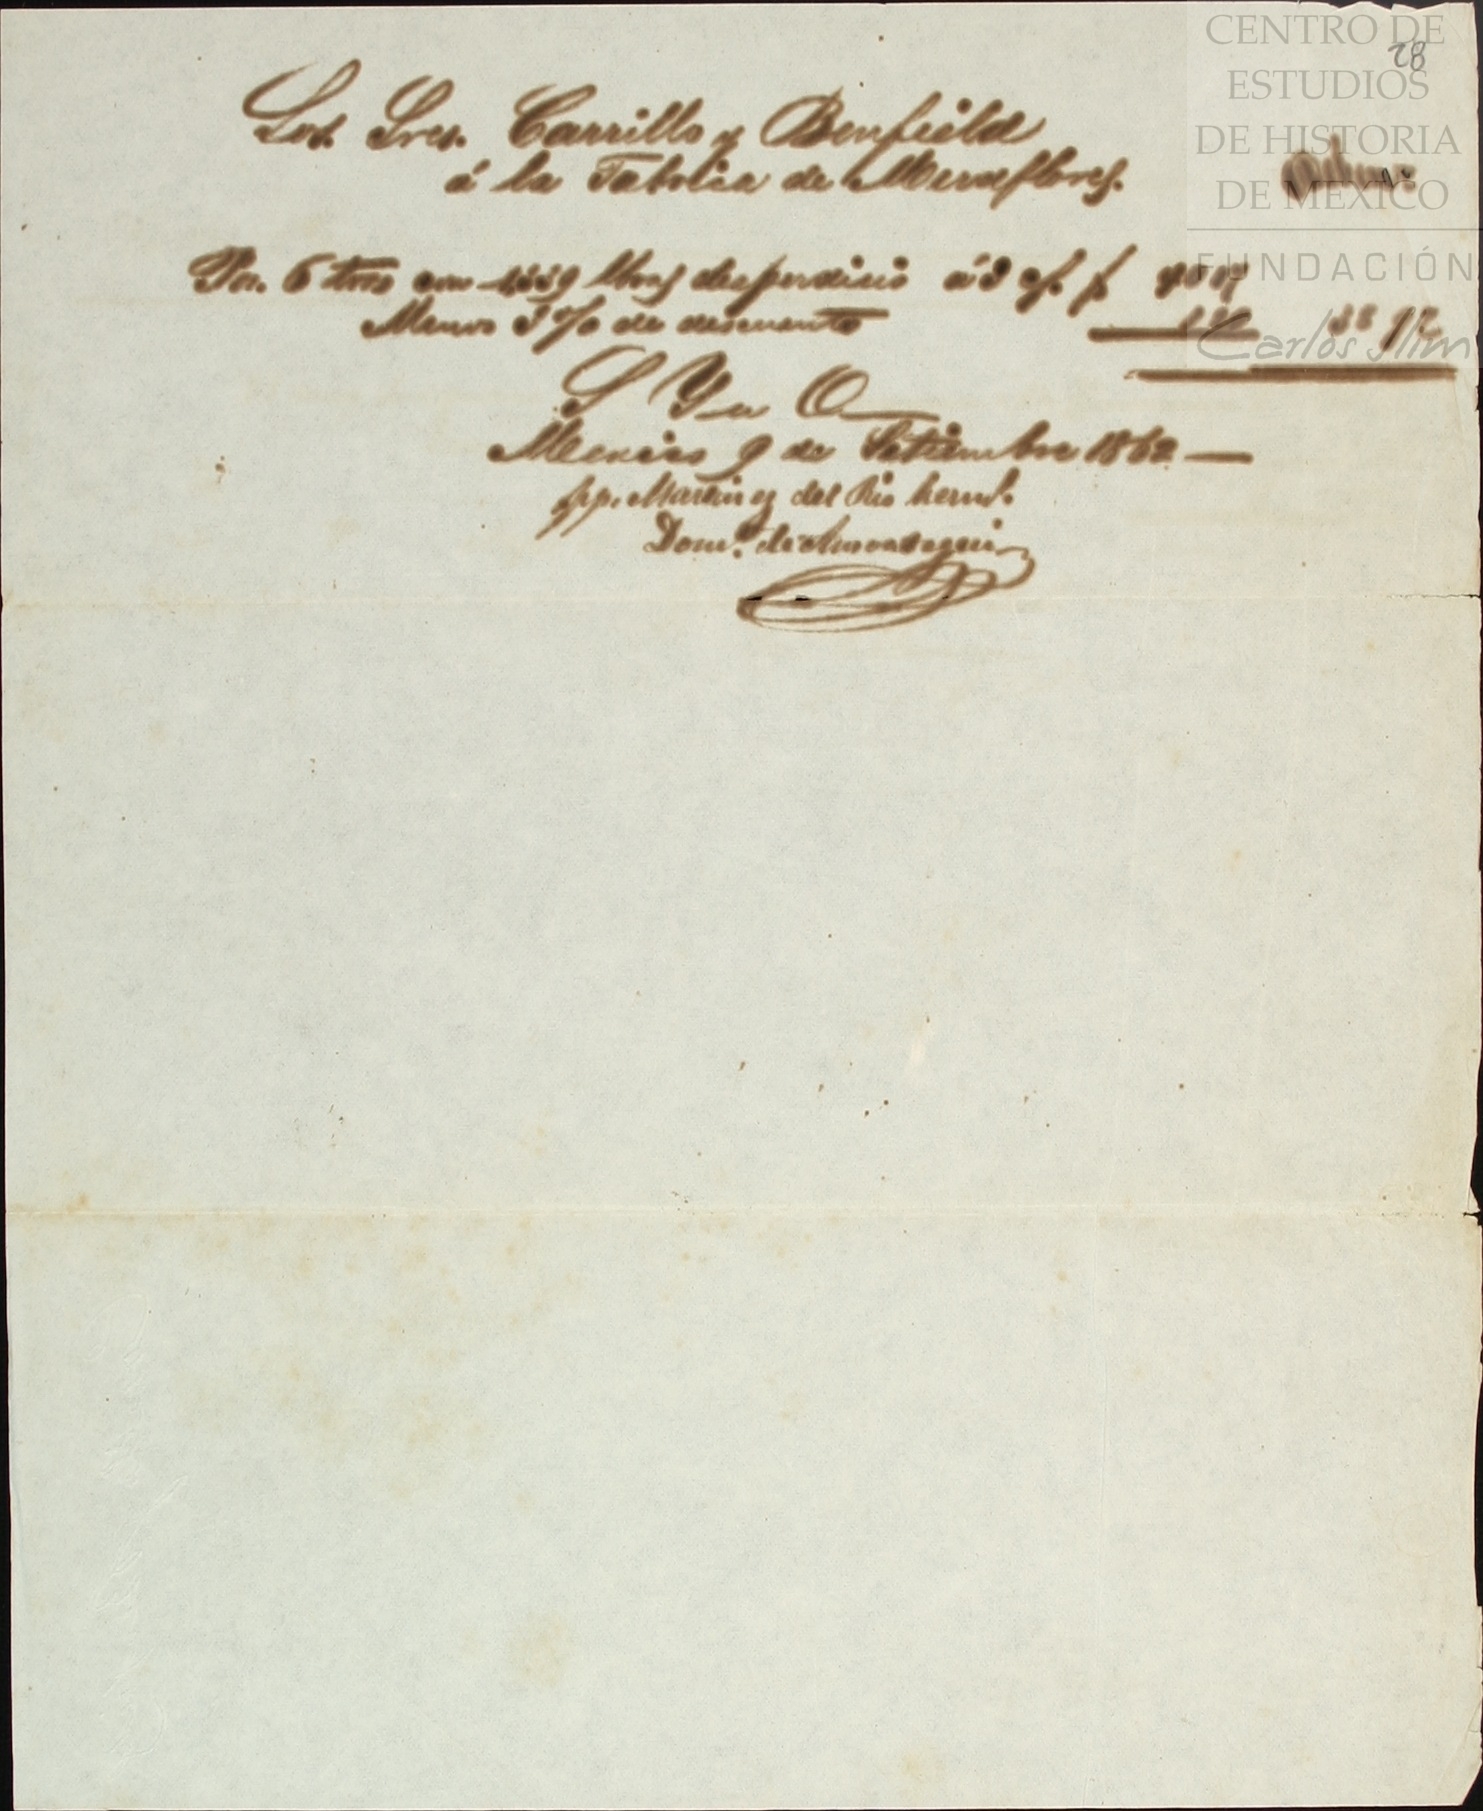 CENTRO DE
ESTUDIOS
DE HISTORIA
DE MÉXICO
FUNDACIÓN
Carlos Slim
28
Los Sres. Carrillo y Benfield
á la Fabrica de Miraflores.
Por 6 con libras desperdicio á 3
Menos 3 % de descuento
S Y u O
Mexico 9 de Setiembre 1862
pp. Martinez del Rio herms.
Domo. de